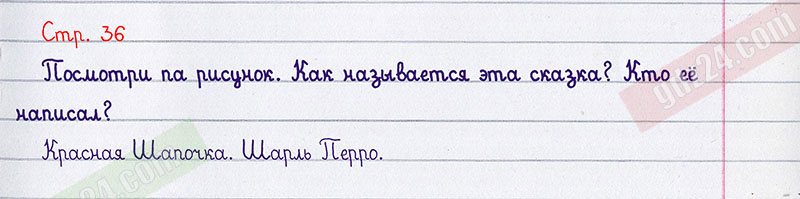 Стр. 36
Посмотри па рисунок. Как называется эта сказка? Кто её
написал?
Красная Шапочка. Шарль Перро.